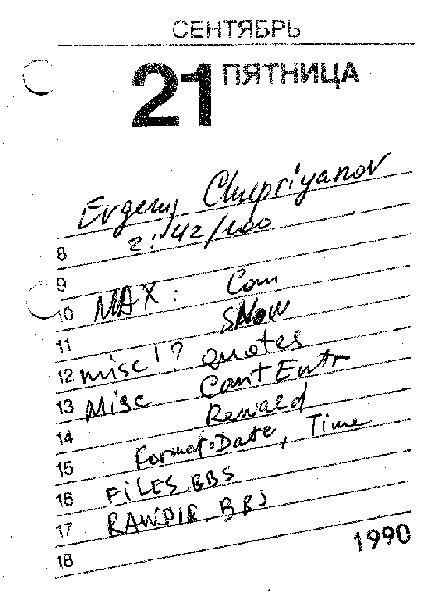 СЕНТЯБРЬ
21 ПЯТНИЦА
Evgeny Chupriyanov
8 2:42/100
9
10 MAX: Com
11 SNow
12 misc!? quotes
13 Misc Cant Entr
14 Renaed
15 Format:Date, Time
16 FILES BBS
17 RAWDIR BBS
18
1990